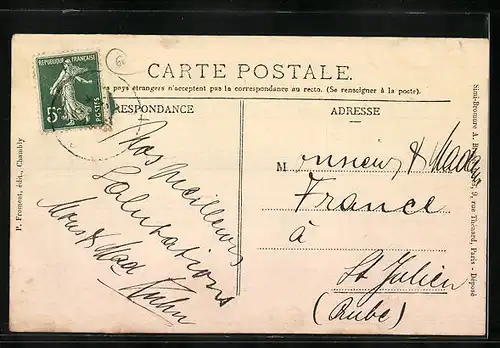 REPUBLIQUE FRANÇAISE
5c
POSTES
CARTE POSTALE.
pays étrangers n'acceptent pas la correspondance au recto. (Se renseigner à la poste).
RESPONDANCE
ADRESSE
Nos meilleures
Salutations
Mons & Mad
Kuhn
Monsieur & Madame
France
à
St Julien
(Aube)
P. Froment, édit., Chambly
Simi-Bromure A. 9, rue Thénard, Paris - Déposé